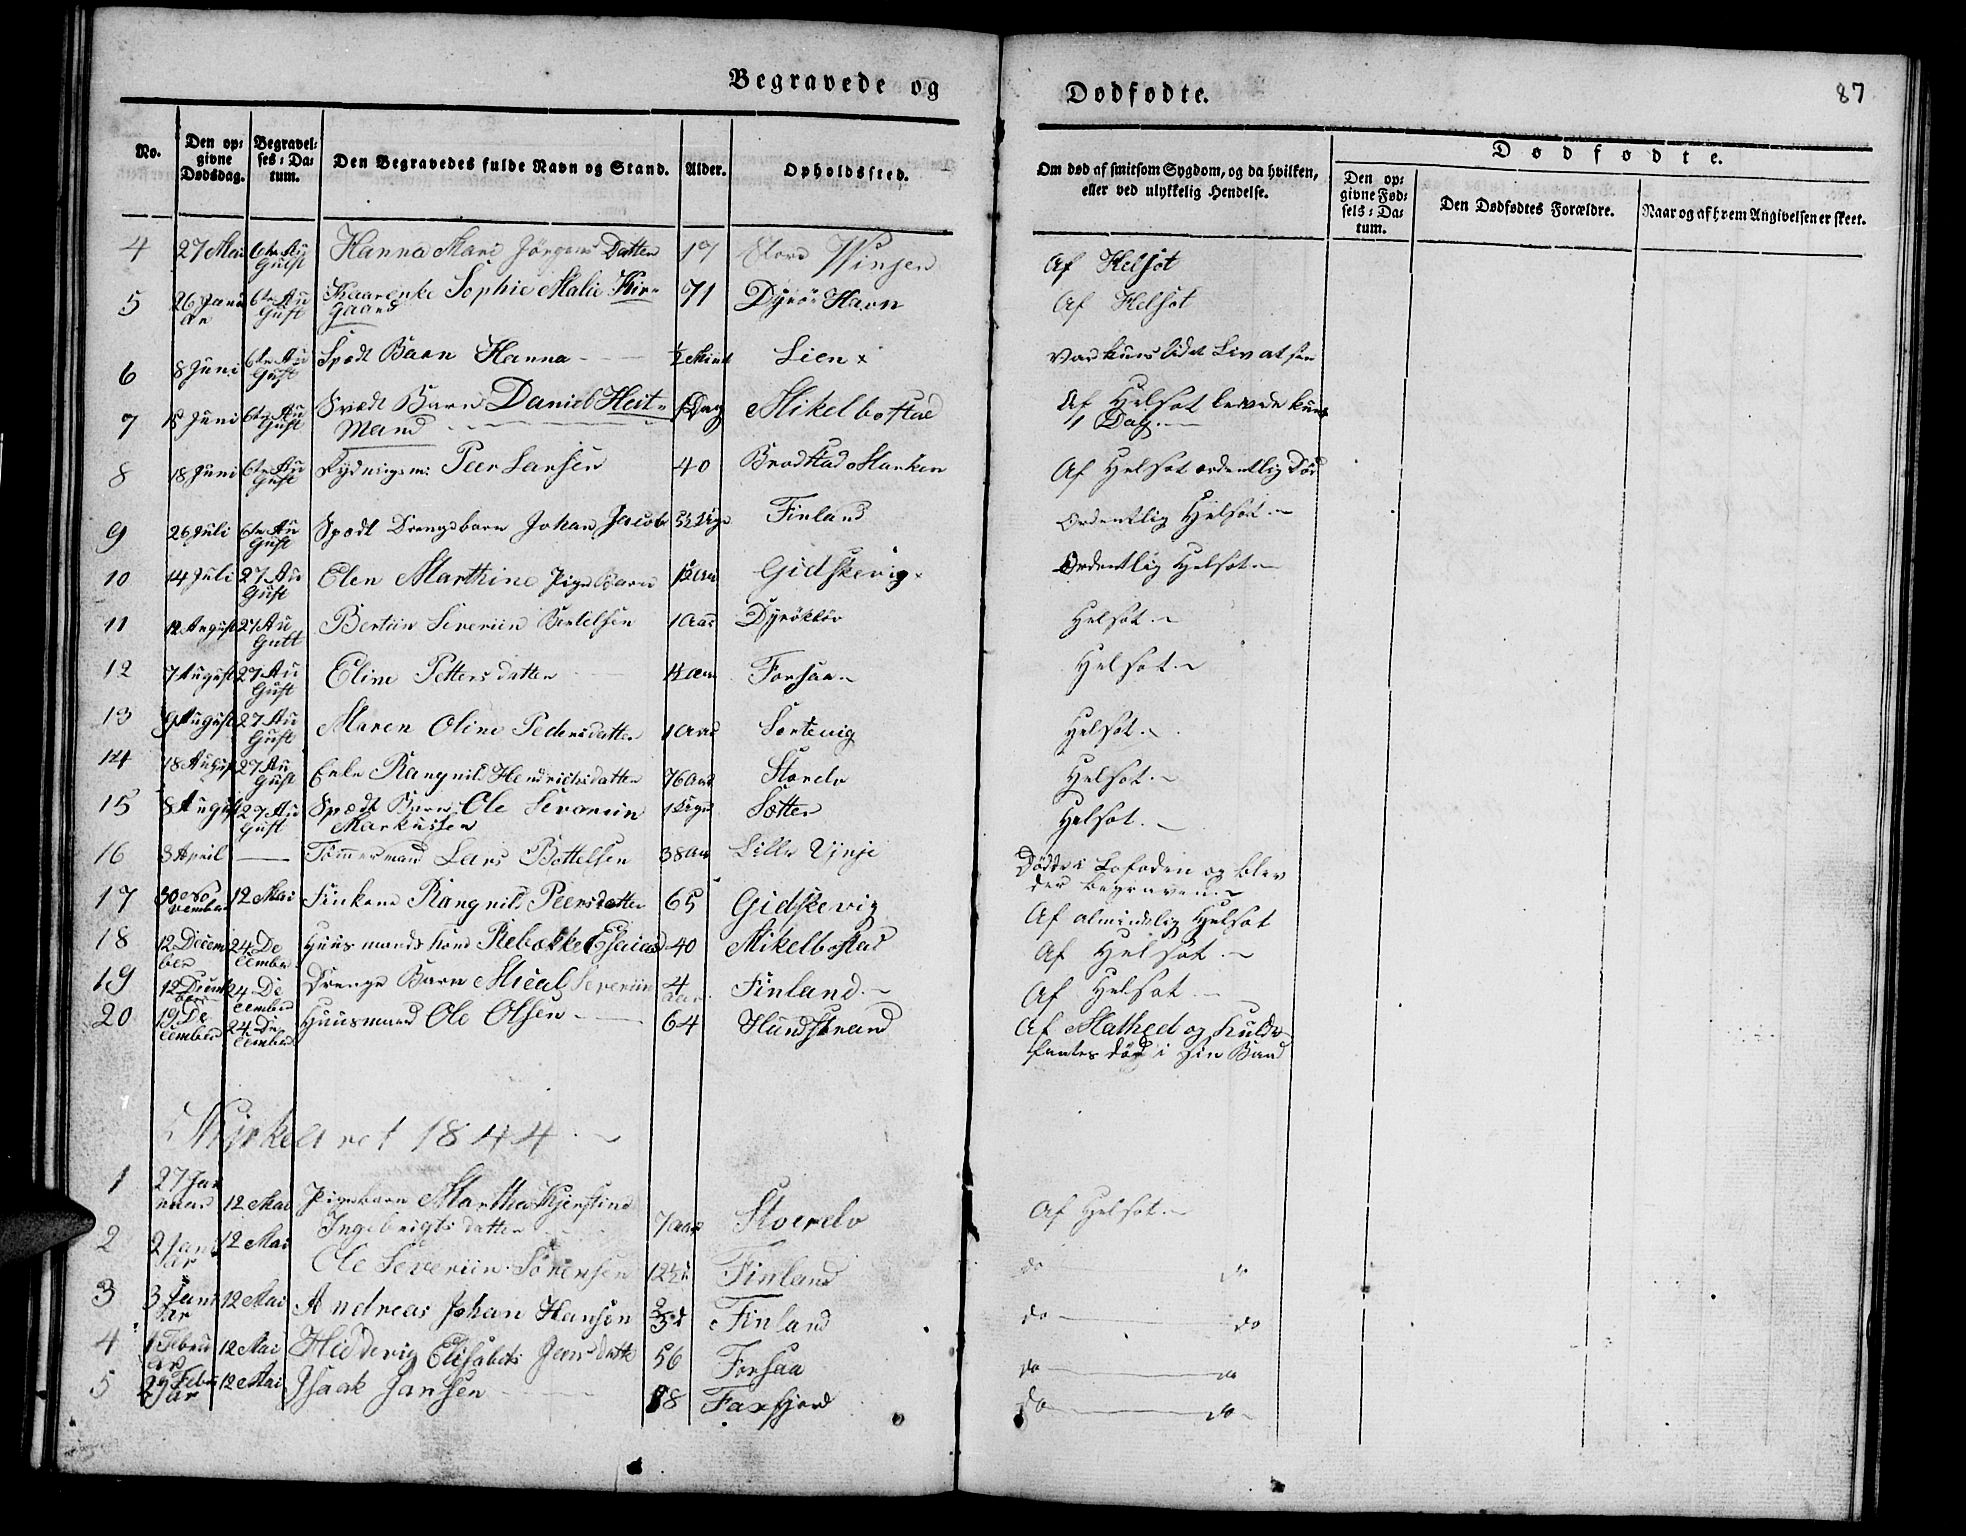 Begravede og Dødfødte.
87
No.
Den opgivne Dødsdag.
Begravelses-Datum.
Den Begravedes fulde Navn og Stand.
Alder.
Opholdssted.
Om død af smitsom Sygdom, og da hvilken, eller ved ulykkelig Hendelse.
Dødfødte.
Den opgivne Fødsels-Datum.
Den Dødfødtes Forældre.
Naar og af hvem Angivelsen er skeet.
4 27 Mai 6te August Hanna Marie Jörgens Datter 17 Store Winjen Af Helsot
5 26 Januar 6te August Sophie Malie Kirgaard 71 Dyröe Havn Af Helsot
6 8 Juni 6te August Spædt Barn Hanna ½ Minut Lien
7 18 Juni 6te August Spædt Barn Daniel Heitmand 1 Dag Mikelbostad Af Helsot levede kuns 1 Dag
8 18 Juni 6te August Peer Larsen 40 Af Helsot ordentlig Död
9 26 Juli 6te August Spædt Drengebarn Johan Jacob Finland Ordentlig Helsot
10 14 Juli 27 August Elen Marthine Pige Barn Gidskevig Ordentlig Helsot
11 12 August 27 August Bertiin Severiin Bertelsen 1 Aar Dyröklöv Helsot
12 7 August 27 August Eline Pettersdatter Forsaa Helsot
13 9 August 27 August Maren Oline Pedersdatter 1 Aar Sortevig Helsot
14 18 August 27 August Enke Rangnild Hendrichsdatter 76 Aar Storelv Helsot
15 8 August 27 August Spædt Barn Ole Severiin Markussen Sætter Helsot
16 3 April — Tømmermand Lars Bottelsen 38 Aar Lille Vinje Dödde i Lofoden og blev der begraven
17 30 November 12 Mai Rangnild Peersdatter 65 Gidskevig Af almindelig Helsot
18 12 December 24 December Huusmands kone Rebække Esaias 40 Mikelbostad Af Helsot
19 12 December 24 December Drenge Barn Mical Severiin 4 Aar Finland Af Helsot
20 19 December 24 December Huusmand Ole Olsen 64 Hundstrand Af og Kulde död i sin Baad
Kirkeaaret 1844
1 27 Januar 12 Mai Pigebarn Martha Kjerstine Ingebrigtsdatter 7 Aar Storelv Af Helsot
2 2 Januar 12 Mai Ole Severiin Sörensen 12½ Finland do — do
3 3 Januar 12 Mai Andreas Johan Hansen Finland do — do
4 1 Februar 12 Mai Hedevig Elisabeth Jansdatter 56 Forsaa do — do
5 Februar 12 Mai Isaak Jansen Faxfjord do — do